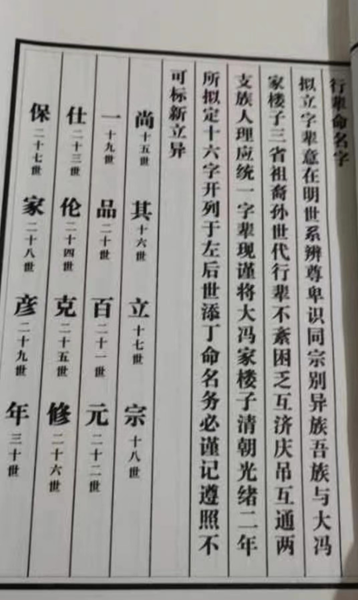 行辈命名字
拟立字辈意在明世系辨尊卑识同宗别异族吾族与大冯
家楼子三省祖裔孙世代行辈不紊困乏互济庆吊互通两
支族人理应统一字辈现谨将大冯家楼子清朝光绪二年
所拟定十六字开列于左后世添丁命名务必谨记遵照不
可标新立异
尚十五世 其十六世 立十七世 宗十八世
一十九世 品二十世 百二十一世 元二十二世
仕二十三世 伦二十四世 克二十五世 修二十六世
保二十七世 家二十八世 彦二十九世 年三十世